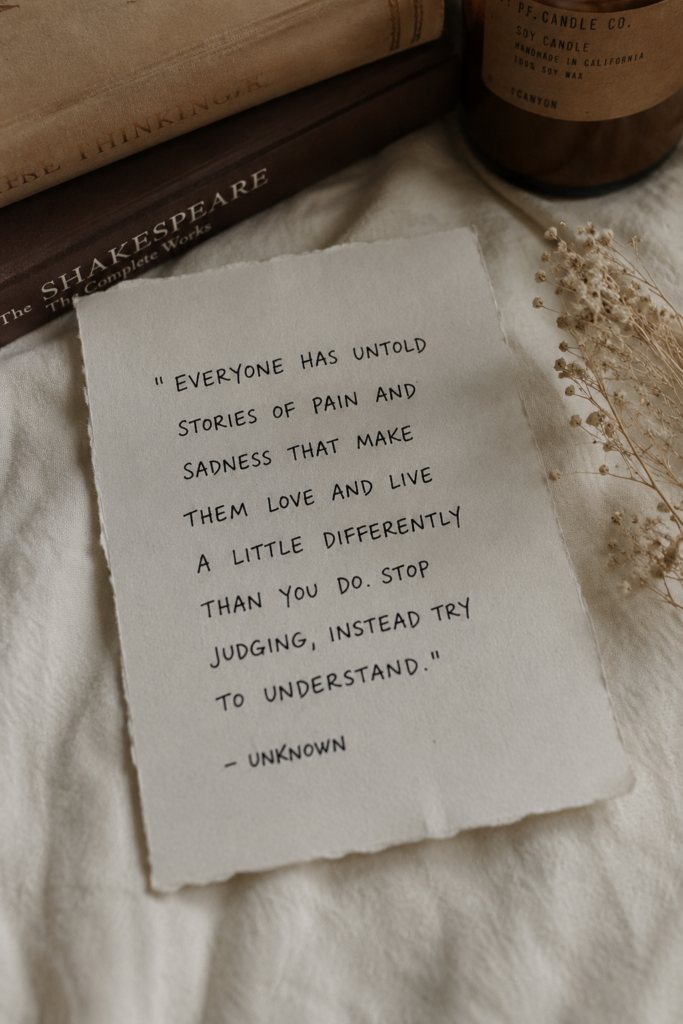 P.F. CANDLE CO.
SOY CANDLE
HANDMADE IN CALIFORNIA
100% SOY WAX
THINKING
SHAKESPEARE
The Complete Works
The
" EVERYONE HAS UNTOLD
STORIES OF PAIN AND
SADNESS THAT MAKE
THEM LOVE AND LIVE
A LITTLE DIFFERENTLY
THAN YOU DO. STOP
JUDGING, INSTEAD TRY
TO UNDERSTAND."
– UNKNOWN